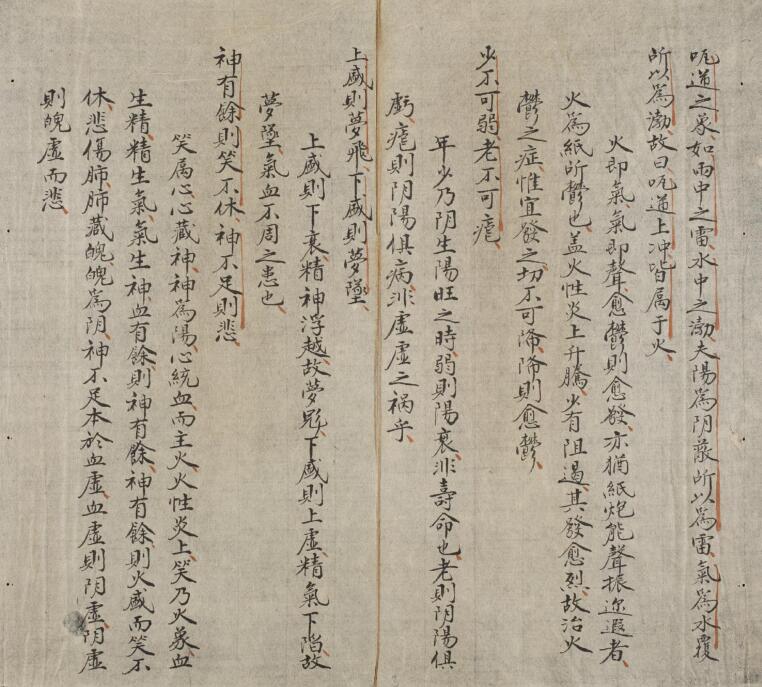 呃逆之象如雨中之雷水中之渤夫陽為阴蔽所以為雷氣為水覆
所以為渤故曰呃逆上冲皆属于火
火即氣氣即聲愈鬱則愈發亦猶紙炮能聲振迩遐者
火為紙所鬱也盖火性炎上升騰少有阻遏其發愈烈故治火
鬱之症惟宜發之切不可降降則愈鬱
少不可弱老不可瘧
年少乃阴生陽旺之時弱則陽衰非壽命也老則阴陽俱
虧瘧則阴陽俱病非虛虛之祸乎
上盛則夢飛下盛則夢墜
上盛則下衰精神浮越故夢飛下盛則上虛精氣下陷故
夢墜氣血不周之患也
神有餘則笑不休神不足則悲
笑属心心藏神神為陽心統血而主火火性炎上笑乃火象血
生精精生氣氣生神血有餘則神有餘神有餘則火盛而笑不
休悲傷肺肺藏魄魄為阴神不足本於血虛血虛則阴虛阴虛
則魄虛而悲